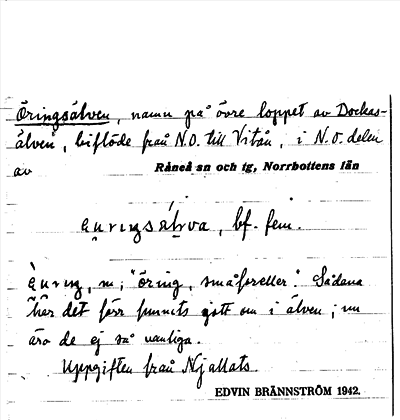 Öringsälven, namn på övre loppet av Dockas-
älven, biflöde från N.O. till Vitån, i N.O. delen
av Råneå sn och tg, Norrbottens län
bf. fem.
m; "öring, småforeller." Sådana
här det förr funnits gott om i älven; nu
äro de ej så vanliga.
Uppgiften från Njallats.
EDVIN BRÄNNSTRÖM 1942.